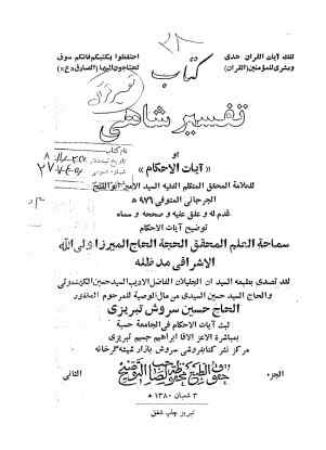 تلك آيات القران هدى وبشرى للمؤمنين (القران)
احتفظوا بكتبكم فانكم سوف تحتاجون اليها (الصادق «ع»)
كتاب
تفسير شاهى
او
«آيات الاحكام»
للعلامة المحقق المتكلم الفقيه السيد الامير ابو الفتح
الجرجانى المتوفى ٩٧٦ ه
قدم له و علق عليه و صححه و سماه
توضيح آيات الاحكام
سماحة العلم المحقق الحجة الحاج الميرزا ولى الله
الاشراقى مد ظله
لقد تصدى بطبعه السيد ان الجليلان الفاضل الاديب السيد حسين
والحاج السيد حسين السيدى من مال الوصية للمرحوم المغفور
الحاج حسين سروش تبريزى
لبث آيات الاحكام فى الجامعة حسبة
بمباشرة الاعز الاقا ابراهيم جسيم تبريزى
مركز نشر كتابفروشى سروش بازار شيشه گرخانه
الجزء
حقوق الطبع محفوظة لصاحب التوضيح
الثانى
٣ شعبان ١٣٨٠ ه
تبريز چاپ شفق